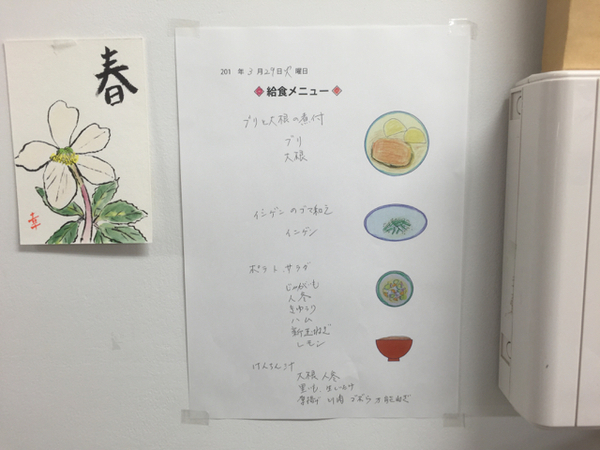 春
幸
201 年 3月29日火曜日
給食メニュー
ブリと大根の煮付
ブリ
大根
インゲンのゴマ和え
インゲン
ポテトサラダ
じゃがいも
人参
きゅうり
ハム
新玉ねぎ
レモン
けんちん汁
大根 人参
里いも
厚揚げ 豚肉 ゴボウ